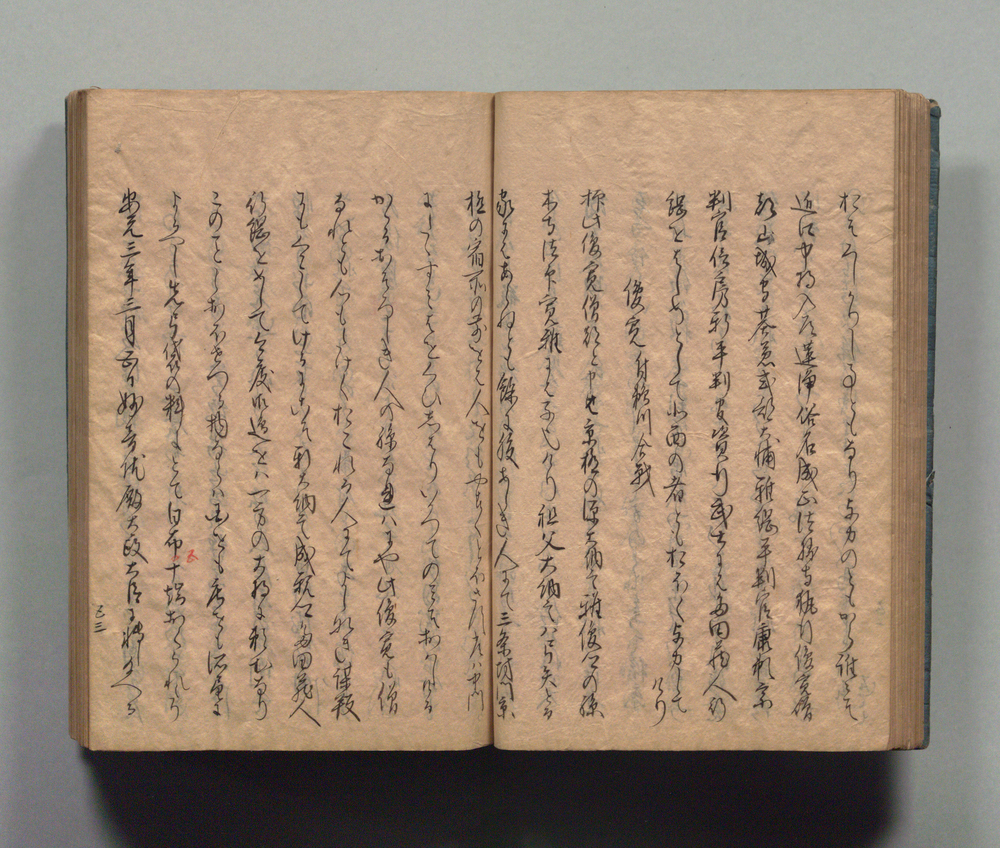 おそろしかりし事ともなり与力のともから誰々そ
近江中将入道蓮浄俗名成正法勝寺執行俊寛僧
都山城守基兼式部大輔雅綱平判官康頼宗
判官信房新平判官資行武士には多田蔵人行
綱をはしめとして北面の者ともおほく与力して
けり
俊寛 付鵜川合戦
抑此俊寛僧都と申は京極の源大納言雅俊卿の孫
木寺法印寛雅には子也けり祖父大納言は弓矢とる
家にはあらねとも余に腹あしき人にて三条坊門京
極の宿所の前をは人をもやすくとほさす常は中門
にたゝすみはをくひしはりいかつてのみそおはしける
かゝるおそろしき人の孫なれはにや此俊寛も僧
なれとも心もたけくおこれる人にてよしなき謀叛
にもくみしてけるにこそ新大納言成親卿多田蔵人
行綱をめして今度御辺をは一方の大将に頼むなり
このことしおほせつる物ならは国をも庄をも所望に
よるへし先弓袋の料にとて白布五十端おくられたり
安元三年三月五日妙音院殿太政大臣に転し給へる